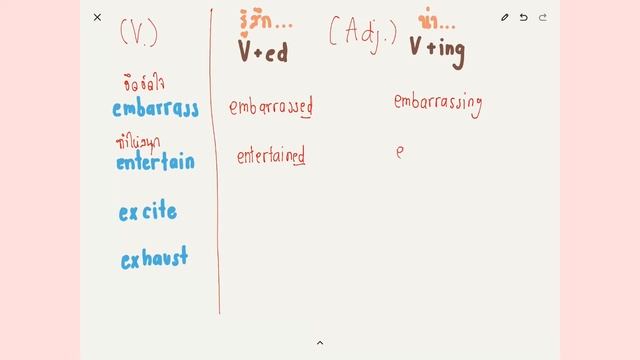 (V.)
รู้สึก... (Adj.) น่า...
V+ed V+ing
embarrass embarrassed embarrassing
ทำให้สนุก
entertain entertained e
excite
exhaust